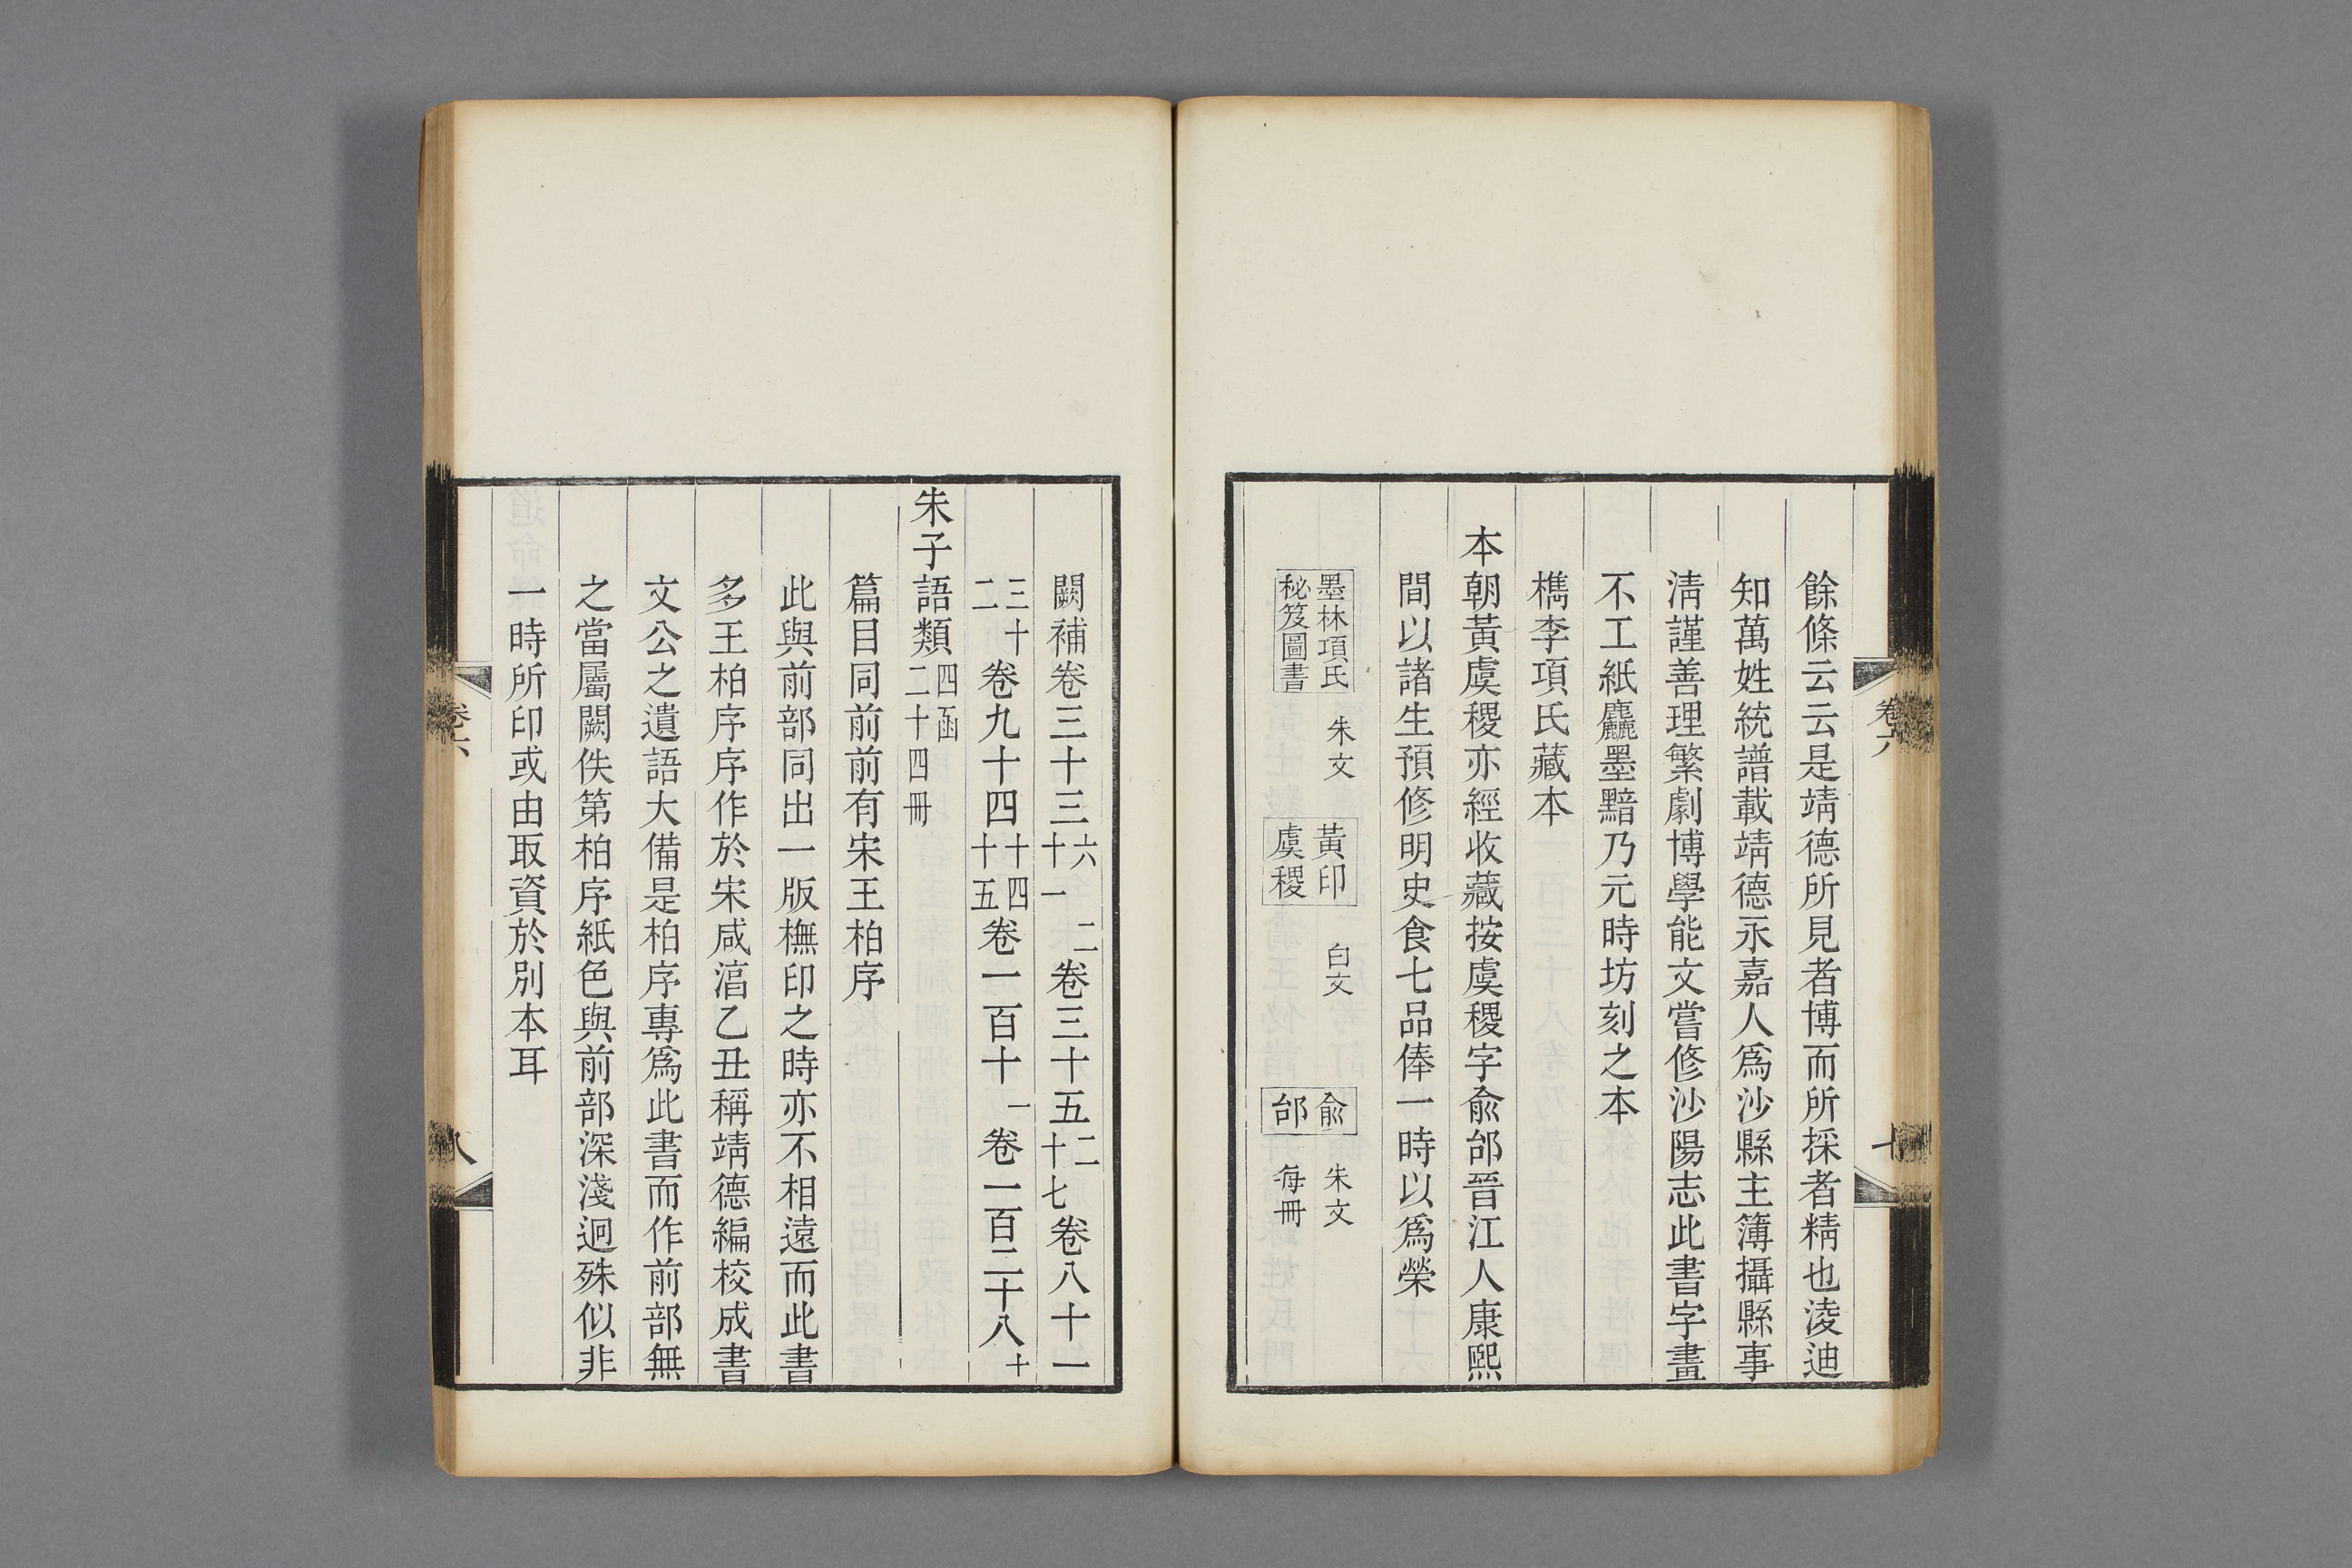 餘條云云是靖德所見者博而所採者精也淩迪
知萬姓統譜載靖德永嘉人爲沙縣主簿攝縣事
淸謹善理繁劇博學能文嘗修沙陽志此書字畫
不工紙麤墨黯乃元時坊刻之本
檇李項氏藏本
本朝黃虞稷亦經收藏按虞稷字兪邰晉江人康熙
間以諸生預修明史食七品俸一時以爲榮
墨林項氏
秘笈圖書
朱文
黃印
虞稷
白文
兪
邰
朱文
每冊
卷六
七
闕補卷三十三六
十一二卷三十五二
十七卷八十一
三十
二卷九十四十四
十五卷一百十一卷一百二十八十
朱子語類四函
二十四冊
篇目同前前有宋王柏序
此與前部同出一版橅印之時亦不相遠而此書
多王柏序序作於宋咸淳乙丑稱靖德編校成書
文公之遺語大備是柏序專爲此書而作前部無
之當屬闕佚第柏序紙色與前部深淺迥殊似非
一時所印或由取資於別本耳
卷六
八